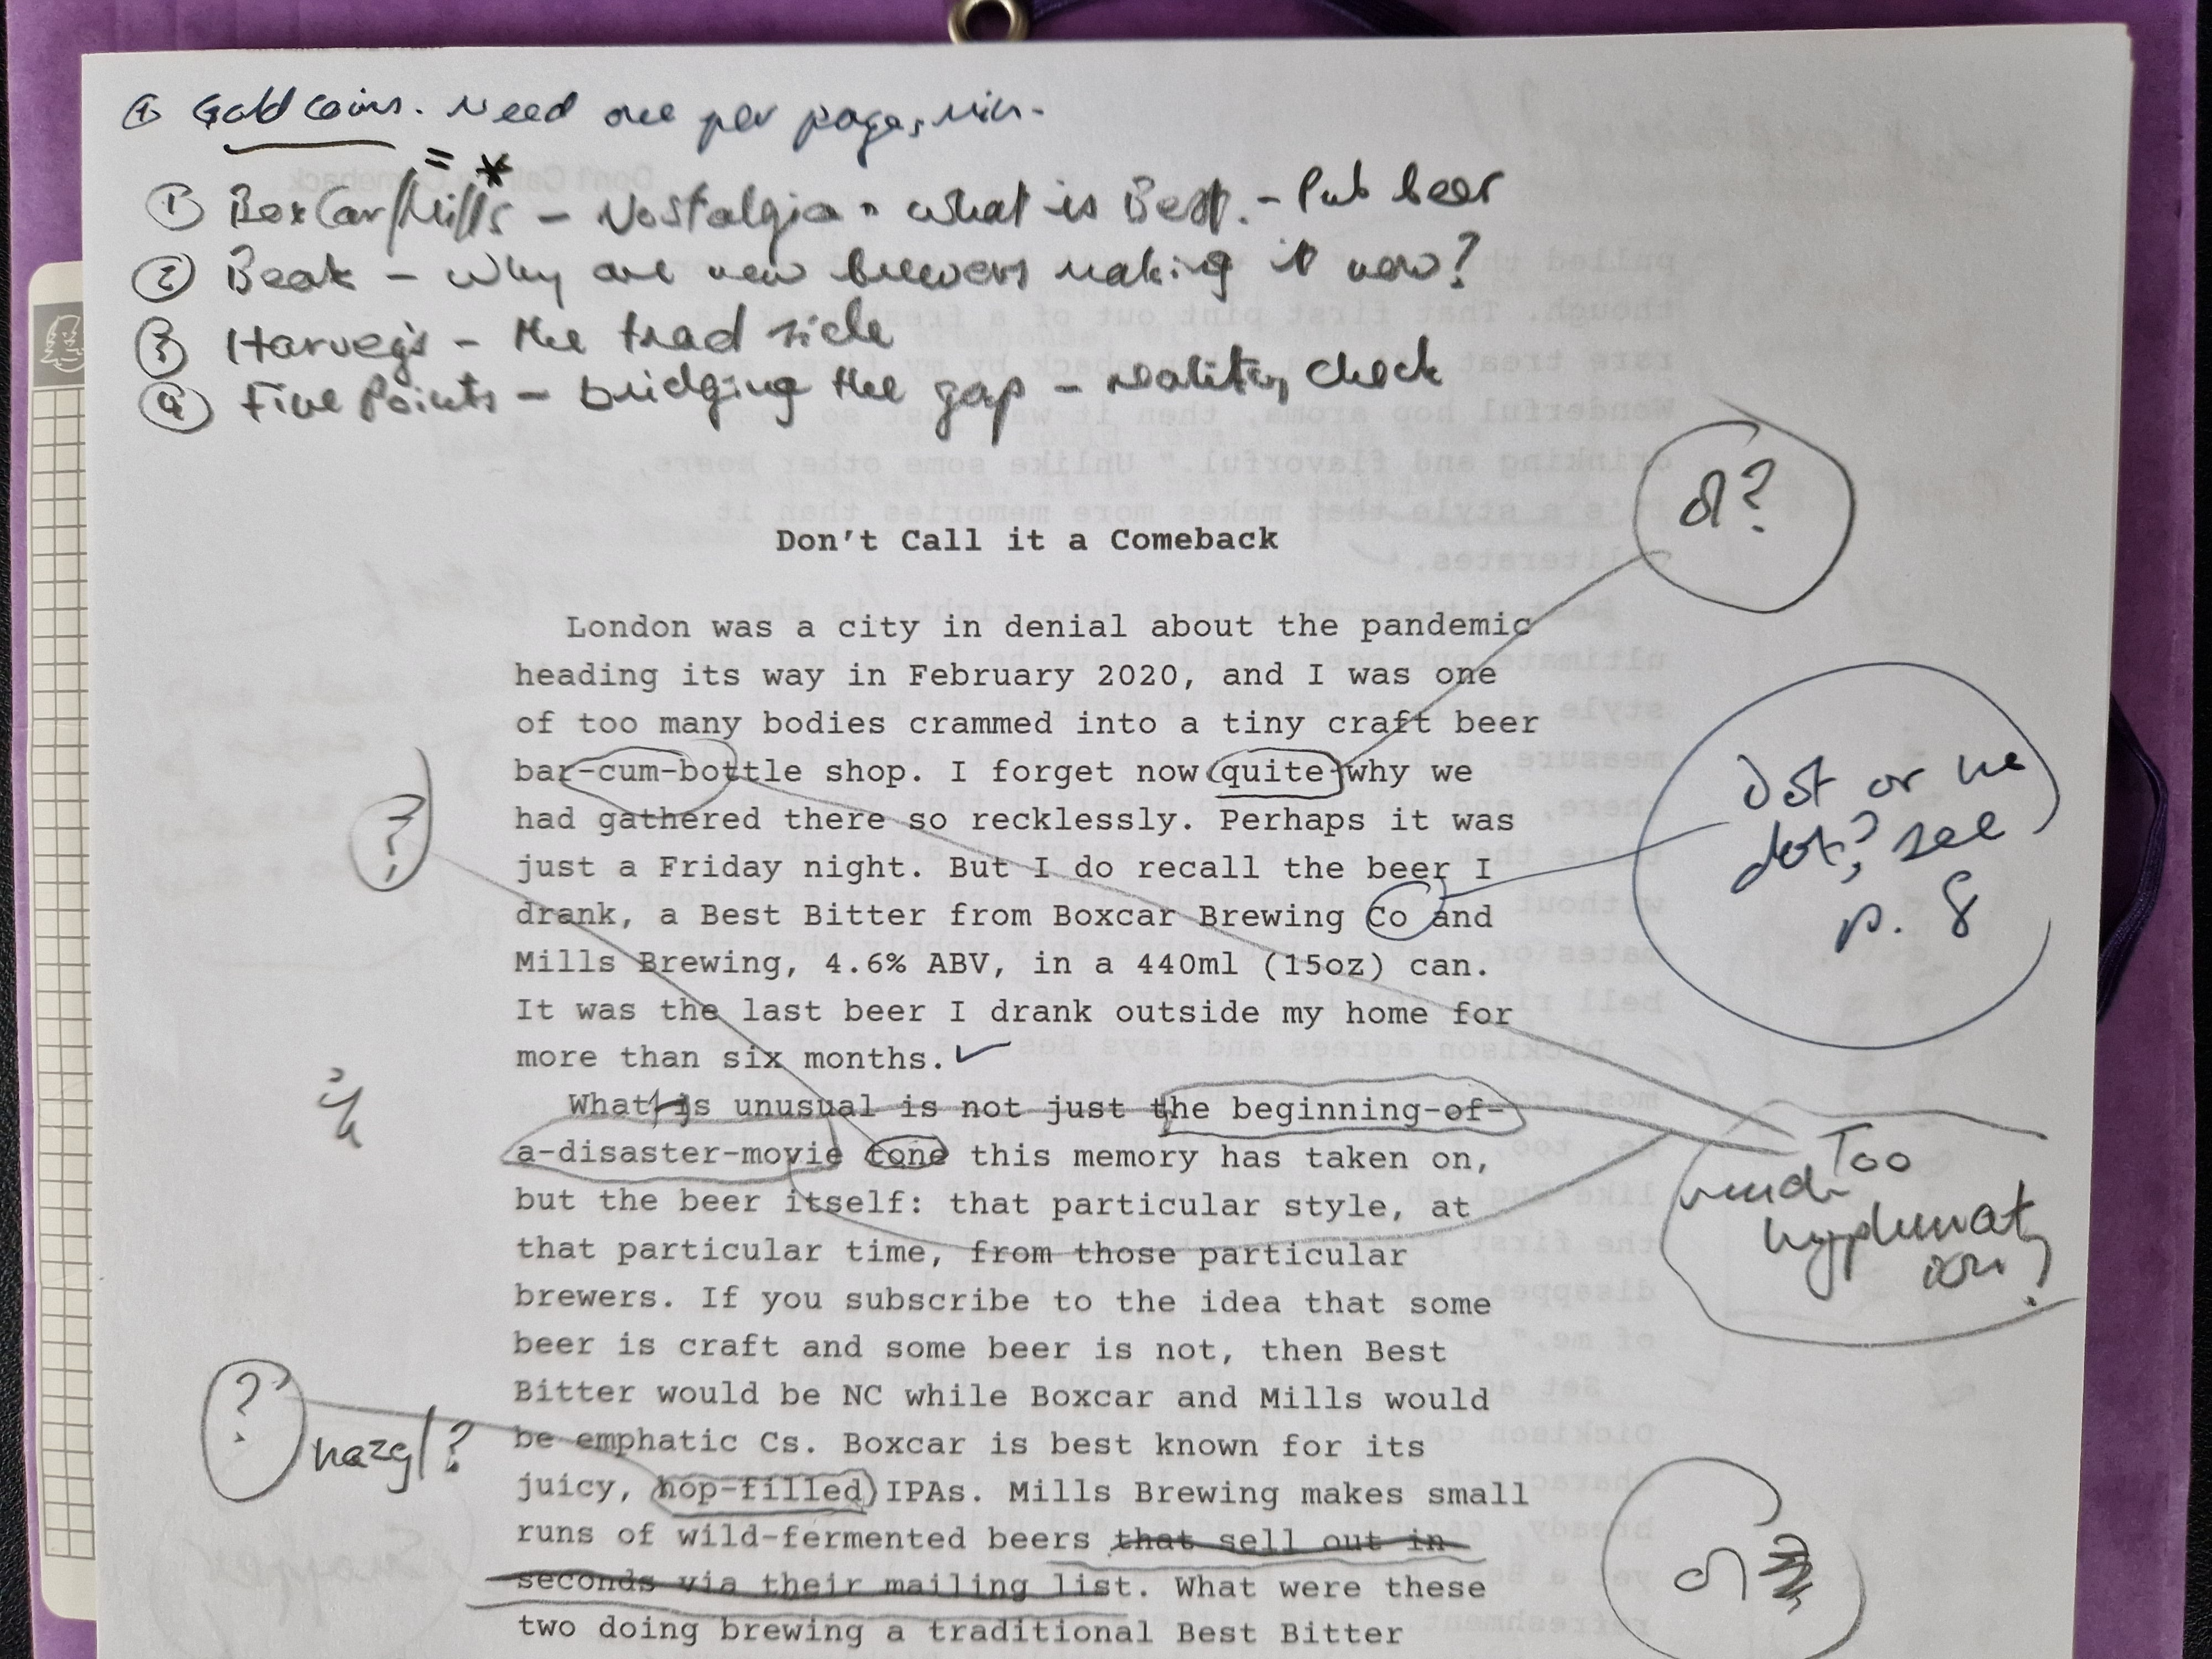 ④ Gold coins. Need one per page, min.
= *
① BoxCar/Mills – Nostalgia • what is Best. – Pub beer
② Beak – Why are new brewers making it now?
③ Harvey's – the trad side
④ Five Points – bridging the gap – reality check
Don't Call it a Comeback
London was a city in denial about the pandemic
heading its way in February 2020, and I was one
of too many bodies crammed into a tiny craft beer
bar-cum-bottle shop. I forget now quite why we
had gathered there so recklessly. Perhaps it was
just a Friday night. But I do recall the beer I
drank, a Best Bitter from Boxcar Brewing Co and
Mills Brewing, 4.6% ABV, in a 440ml (15oz) can.
It was the last beer I drank outside my home for
more than six months.
What is unusual is not just the beginning-of-
a-disaster-movie tone this memory has taken on,
but the beer itself: that particular style, at
that particular time, from those particular
brewers. If you subscribe to the idea that some
beer is craft and some beer is not, then Best
Bitter would be NC while Boxcar and Mills would
be emphatic Cs. Boxcar is best known for its
juicy, hop-filled IPAs. Mills Brewing makes small
runs of wild-fermented beers that sell out in
seconds via their mailing list. What were these
two doing brewing a traditional Best Bitter
?
Dot or no
dot? see
p. 8
?
Too
much
hyphenat
ion?
?
hazy?